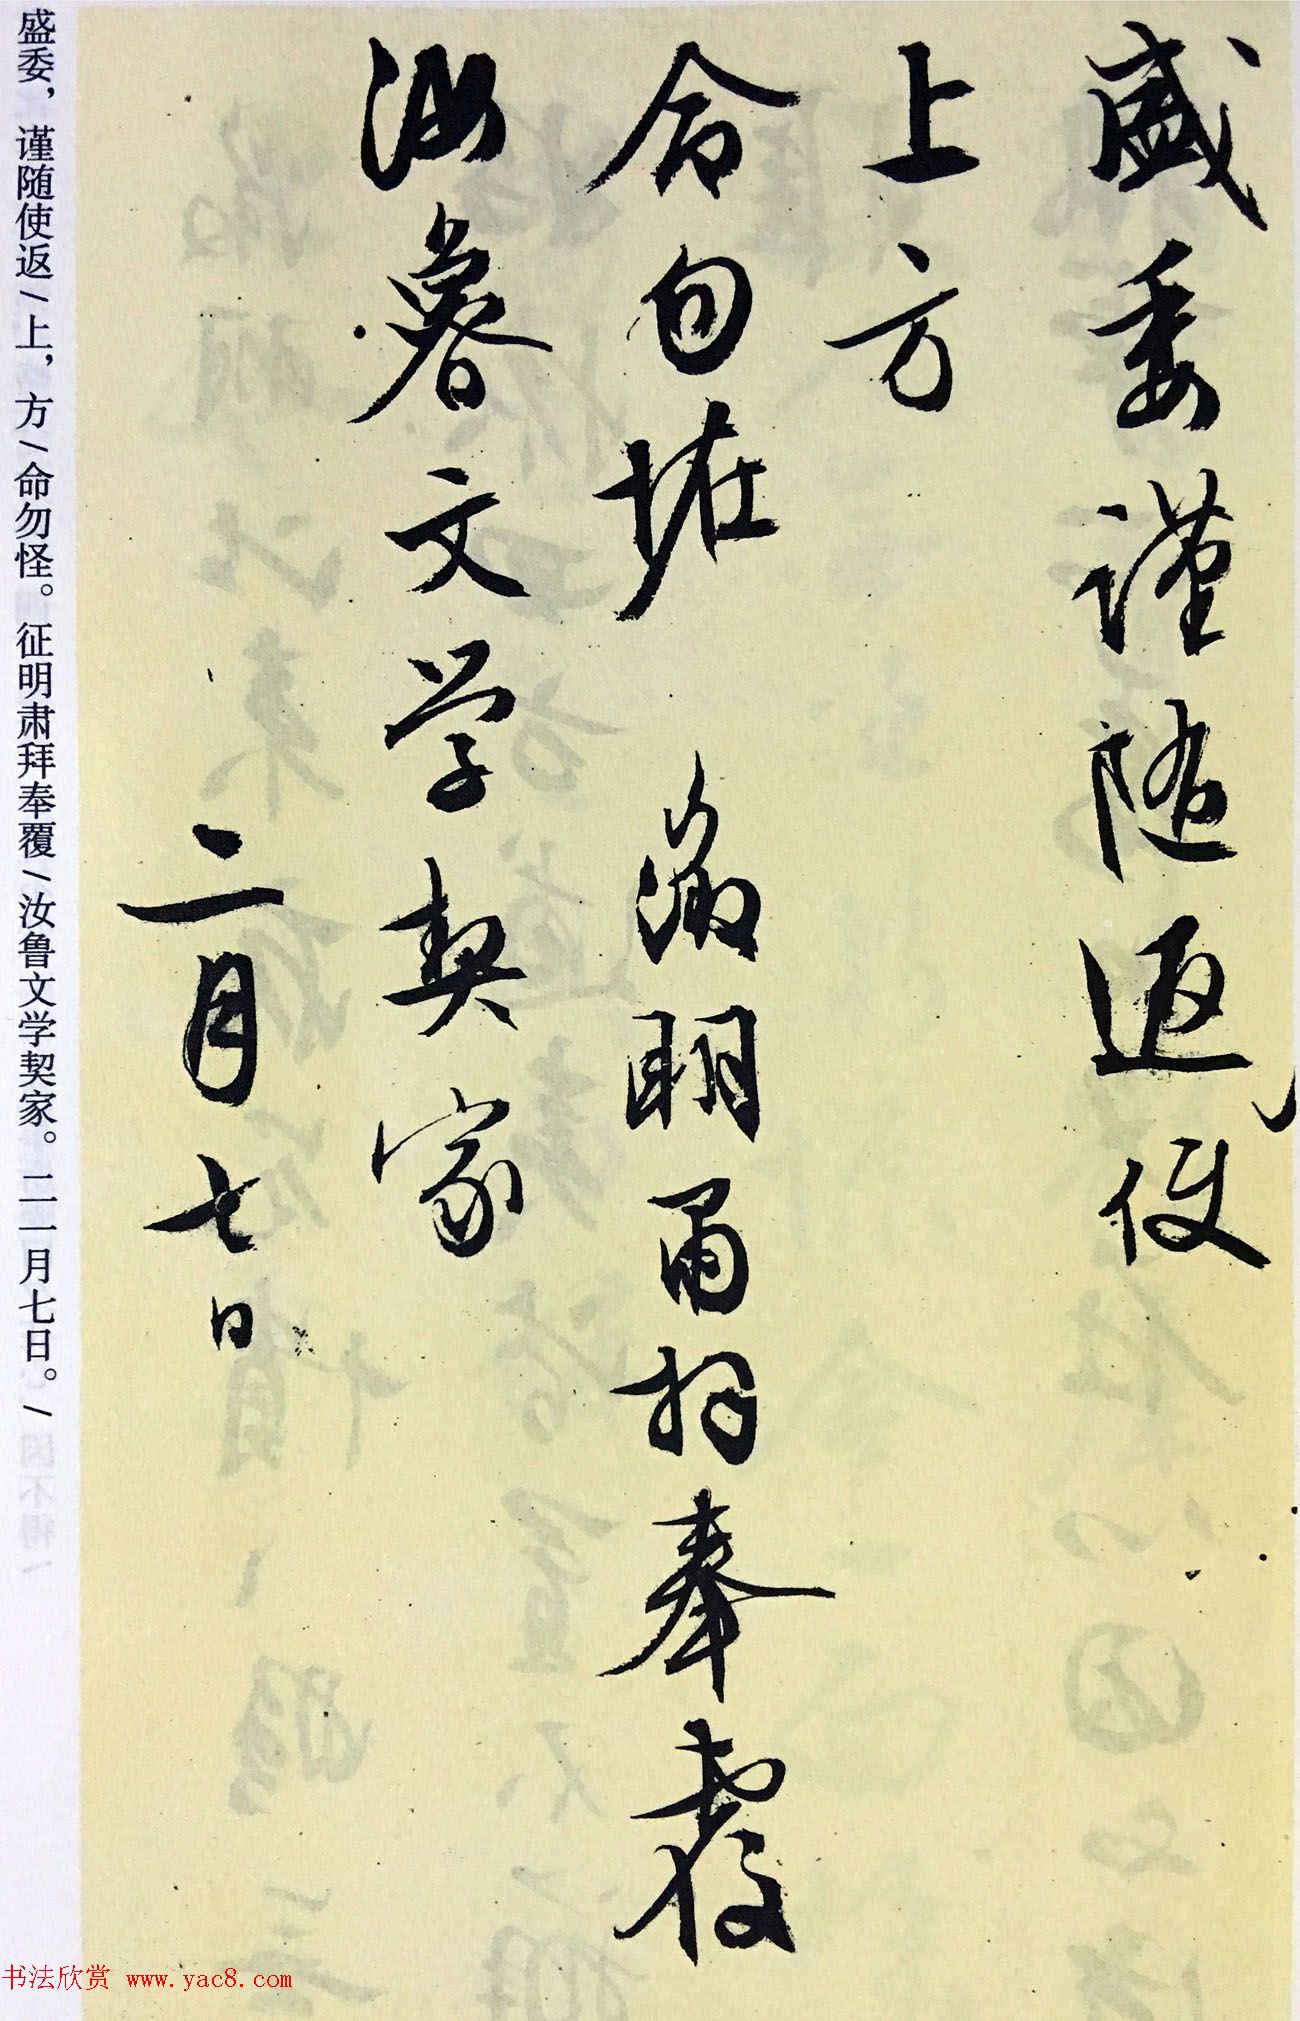 盛委謹随返使
上方
命勿恠 徵明肅拜奉覆
汝魯文学契家
二月七日
盛委，谨随使返/上，方/命勿怪。征明肃拜奉覆/汝鲁文学契家。二一月七日。/
书法欣赏 www.yac8.com